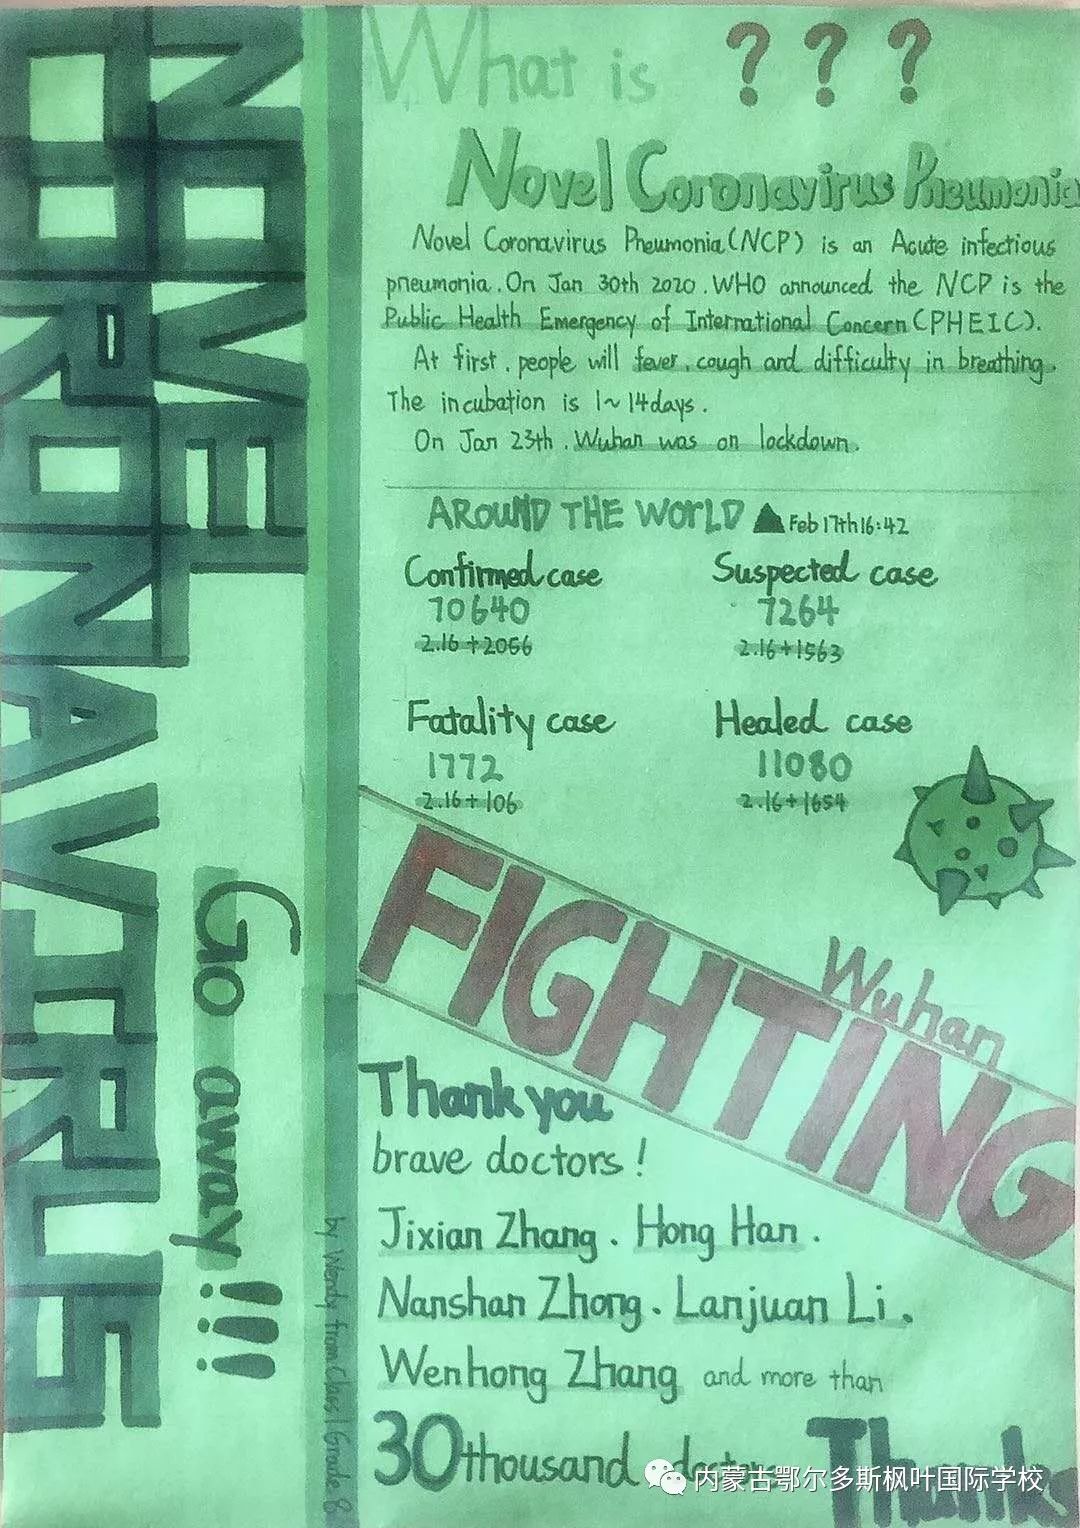 NOVEL
CORONAVIRUS
Go away!!!
What is ???
Novel Coronavirus Pneumonia
Novel Coronavirus Pneumonia(NCP) is an Acute infectious
pneumonia. On Jan 30th 2020. WHO announced the NCP is the
Public Health Emergency of International Concern(PHEIC).
At first, people will fever, cough and difficulty in breathing.
The incubation is 1~14days.
On Jan 23th, Wuhan was on lockdown.
AROUND THE WORLD ▲Feb 17th 16:42
Confirmed case
70640
2.16+2056
Suspected case
7264
2.16+1563
Fatality case
1772
2.16+106
Healed case
11080
2.16+1654
Wuhan
FIGHTING
Thank you
brave doctors!
Jixian Zhang. Hong Han.
Nanshan Zhong. Lanjuan Li.
Wenhong Zhang and more than
30thousand doctors
Thanks
by Wendy from Class 1 Grade 8
内蒙古鄂尔多斯枫叶国际学校